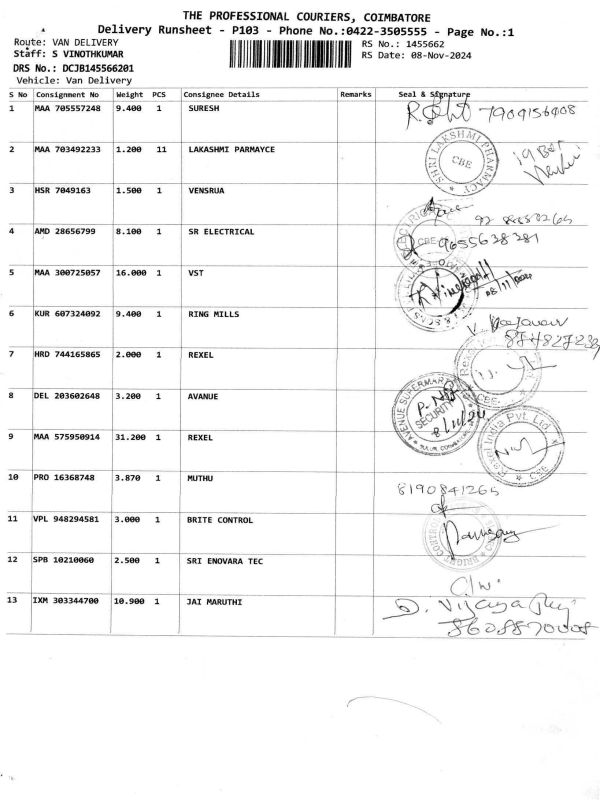 THE PROFESSIONAL COURIERS, COIMBATORE
Delivery Runsheet - P103 - Phone No.:0422-3505555 - Page No.:1
Route: VAN DELIVERY RS No.: 1455662
Staff: S VINOTHKUMAR RS Date: 08-Nov-2024
DRS No.: DCJB145566201
Vehicle: Van Delivery
S No Consignment No Weight PCS Consignee Details Remarks Seal & Signature
1 MAA 705557248 9.400 1 SURESH
2 MAA 703492233 1.200 11 LAKASHMI PARMAYCE
SHRI LAKSHMI PHARMACY CBE
3 HSR 7049163 1.500 1 VENSRUA
4 AMD 28656799 8.100 1 SR ELECTRICAL
CBE 9655638381
5 MAA 300725057 16.000 1 VST
08/11/2024
6 KUR 607324092 9.400 1 RING MILLS
7 HRD 744165865 2.000 1 REXEL
CBE.
8 DEL 203602648 3.200 1 AVANUE
AVENUE SUPERMAR
SECURITY
8/11/24
9 MAA 575950914 31.200 1 REXEL
Rexel India Pvt. Ltd. CBE
10 PRO 16368748 3.870 1 MUTHU
8190841265
11 VPL 948294581 3.000 1 BRITE CONTROL
BRIGHT CONTRO
12 SPB 10210060 2.500 1 SRI ENOVARA TEC
13 IXM 303344700 10.900 1 JAI MARUTHI
D. Vijaya